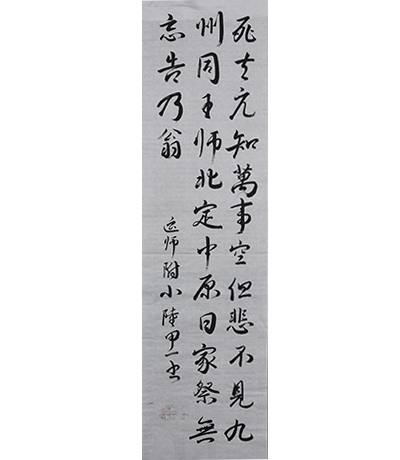 死去元知萬事空但悲不見九
州同王師北定中原日家祭無
忘告乃翁
辽师附小陸甲一书